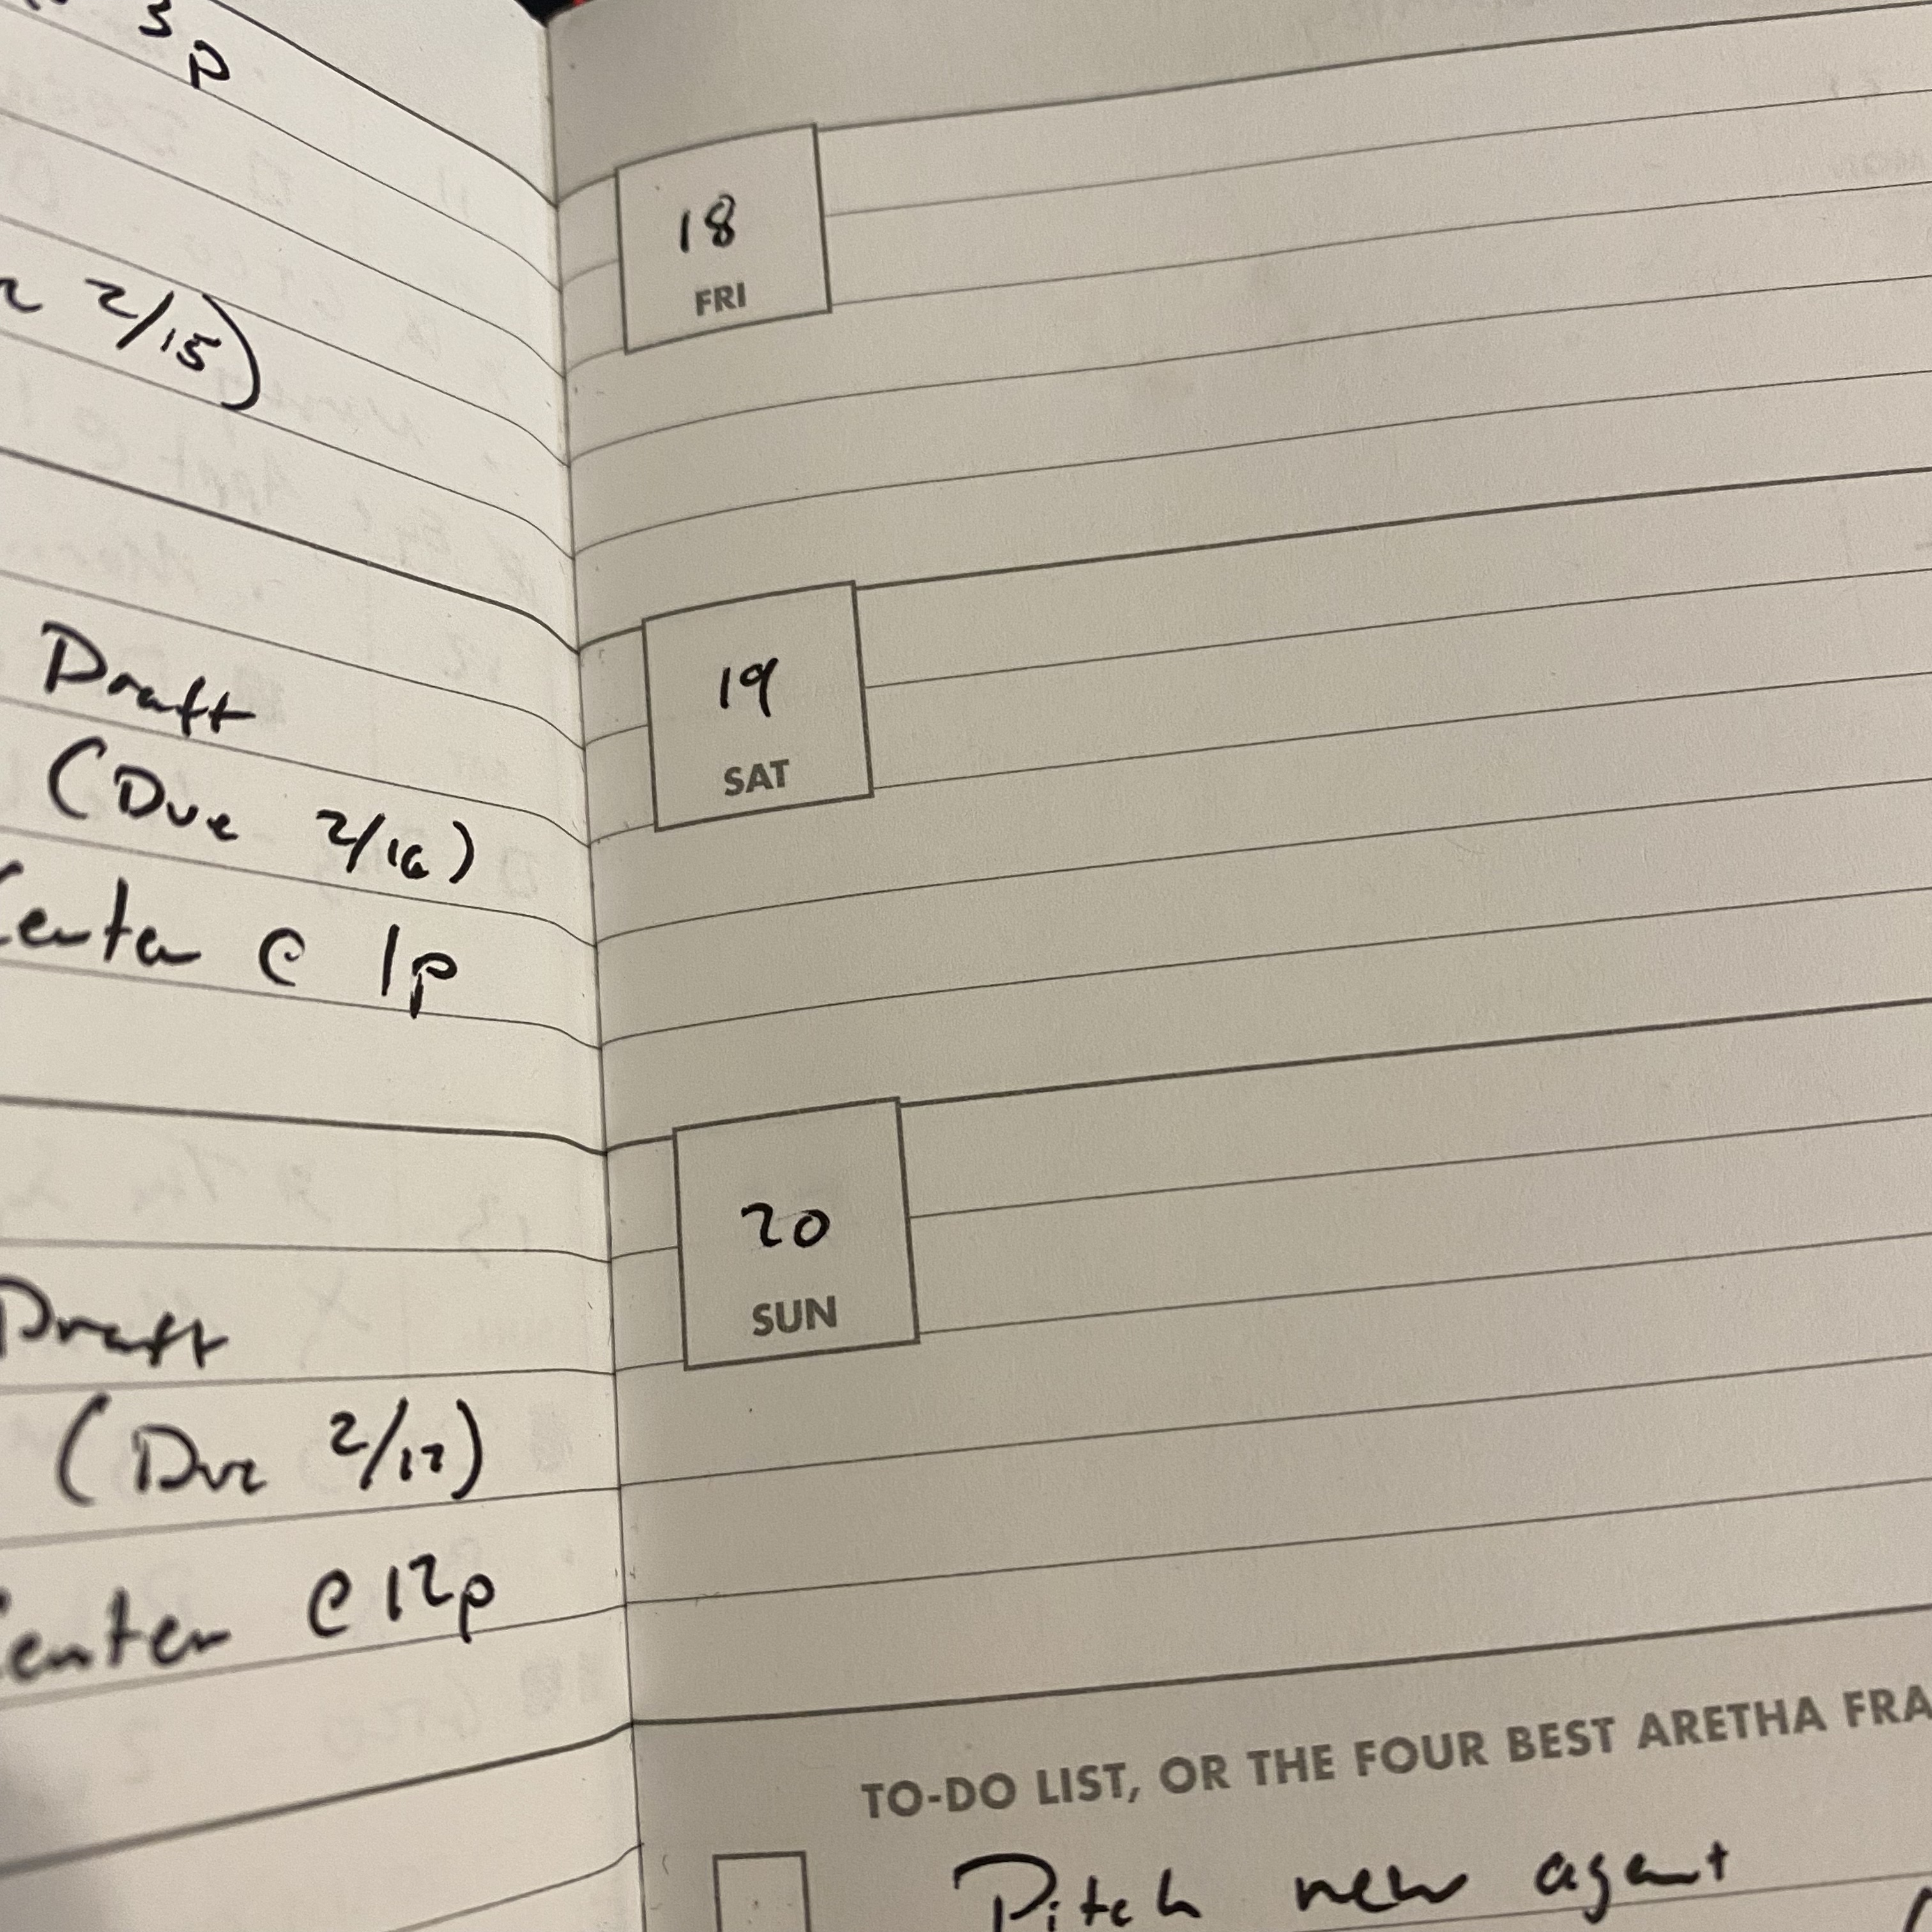 3
p
2/15)
Draft
(Due 2/16)
Center @ 1p
Draft
(Due 2/17)
Center @ 12p
18
FRI
19
SAT
20
SUN
TO-DO LIST, OR THE FOUR BEST ARETHA FRA
Pitch new agent